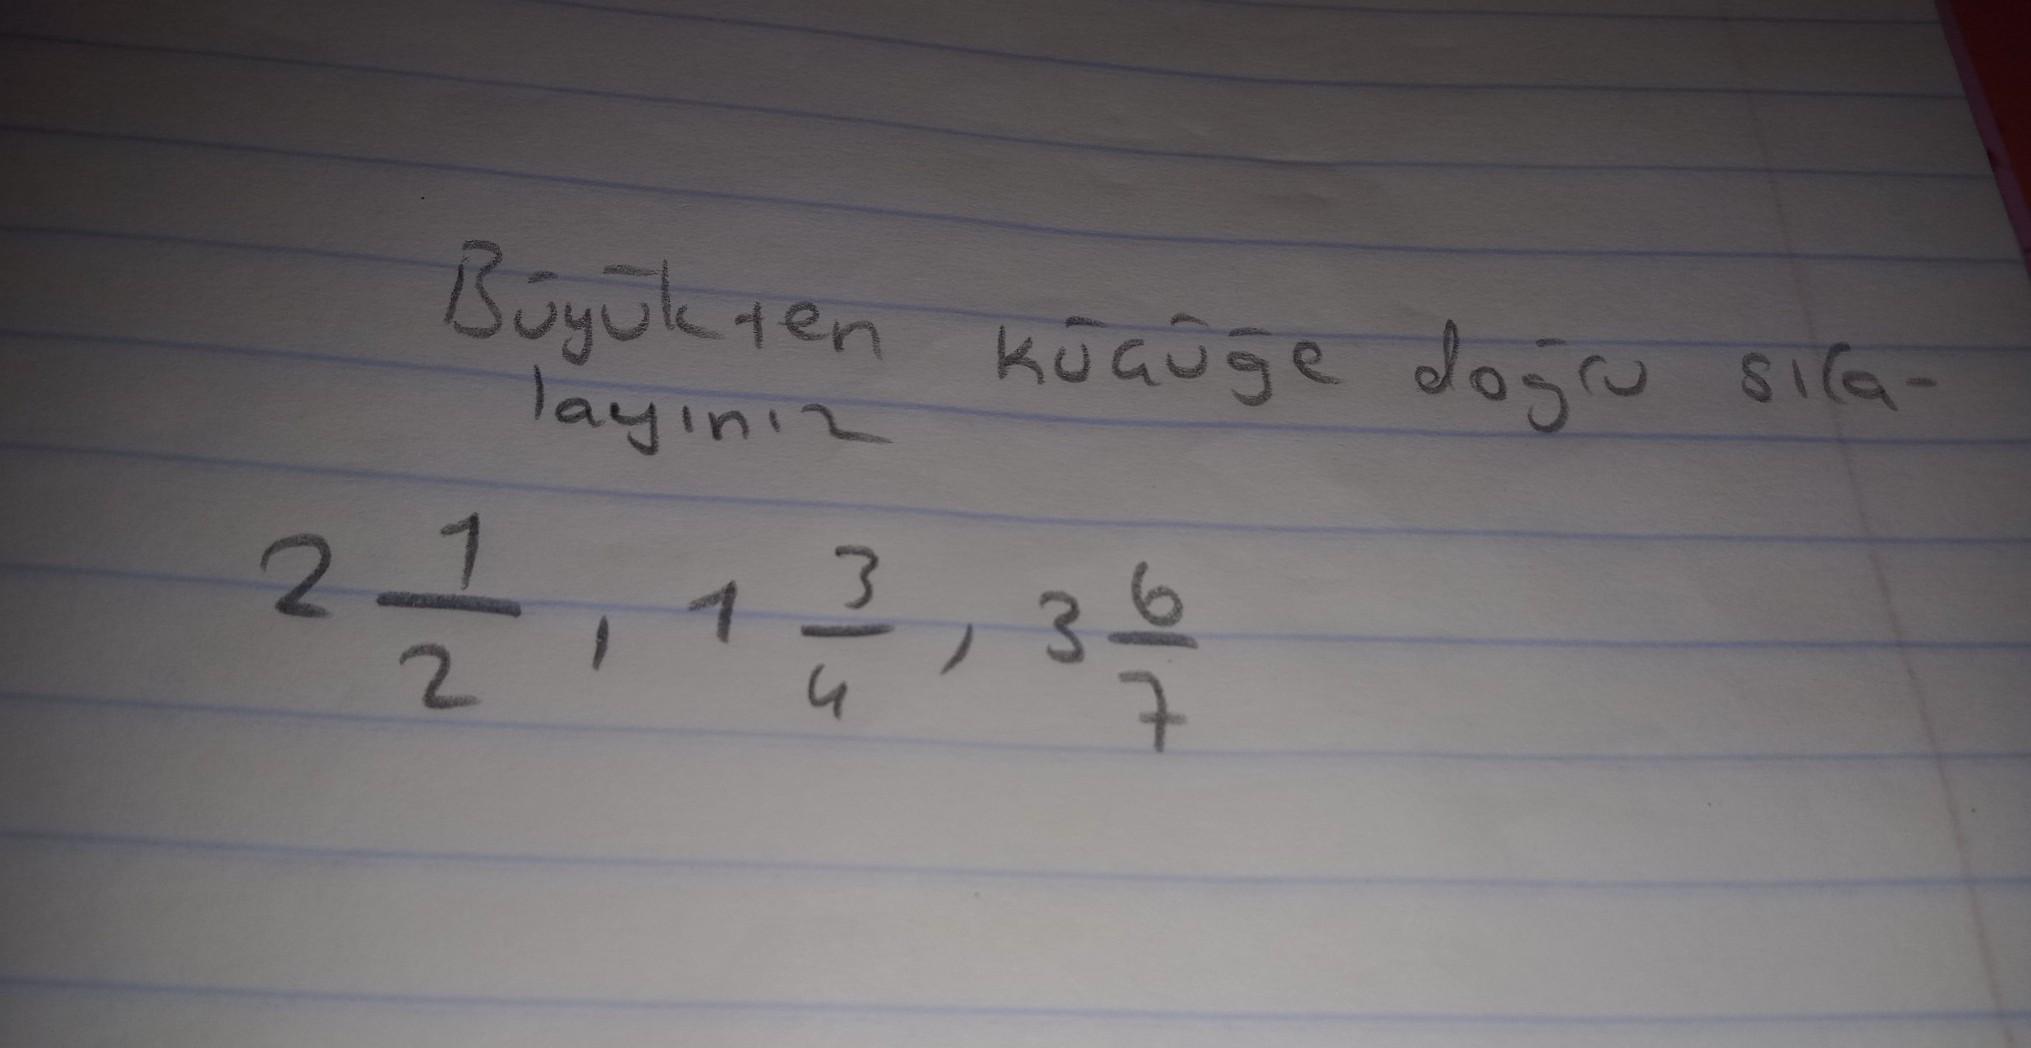 Büyükten küçüğe doğru sıra-
layınız
2 1/2, 1 3/4, 3 6/7